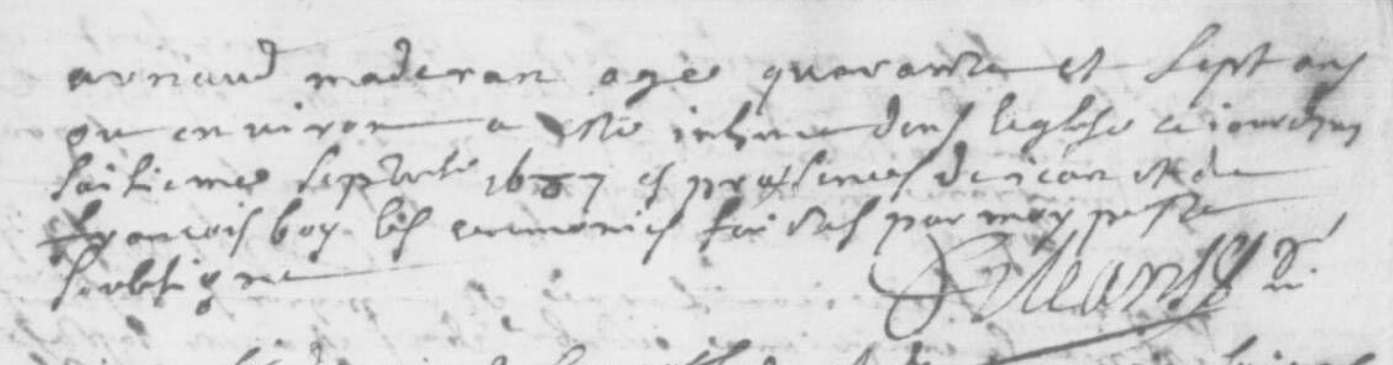 arnaud maderan agé quarante et sept ans
ou environ a esté inhumé dans leglise ce iourdhuy
huitieme septembre 1687 es presences de iean et de
francois boy les ceremonies faites par moy prestre
soubsigne